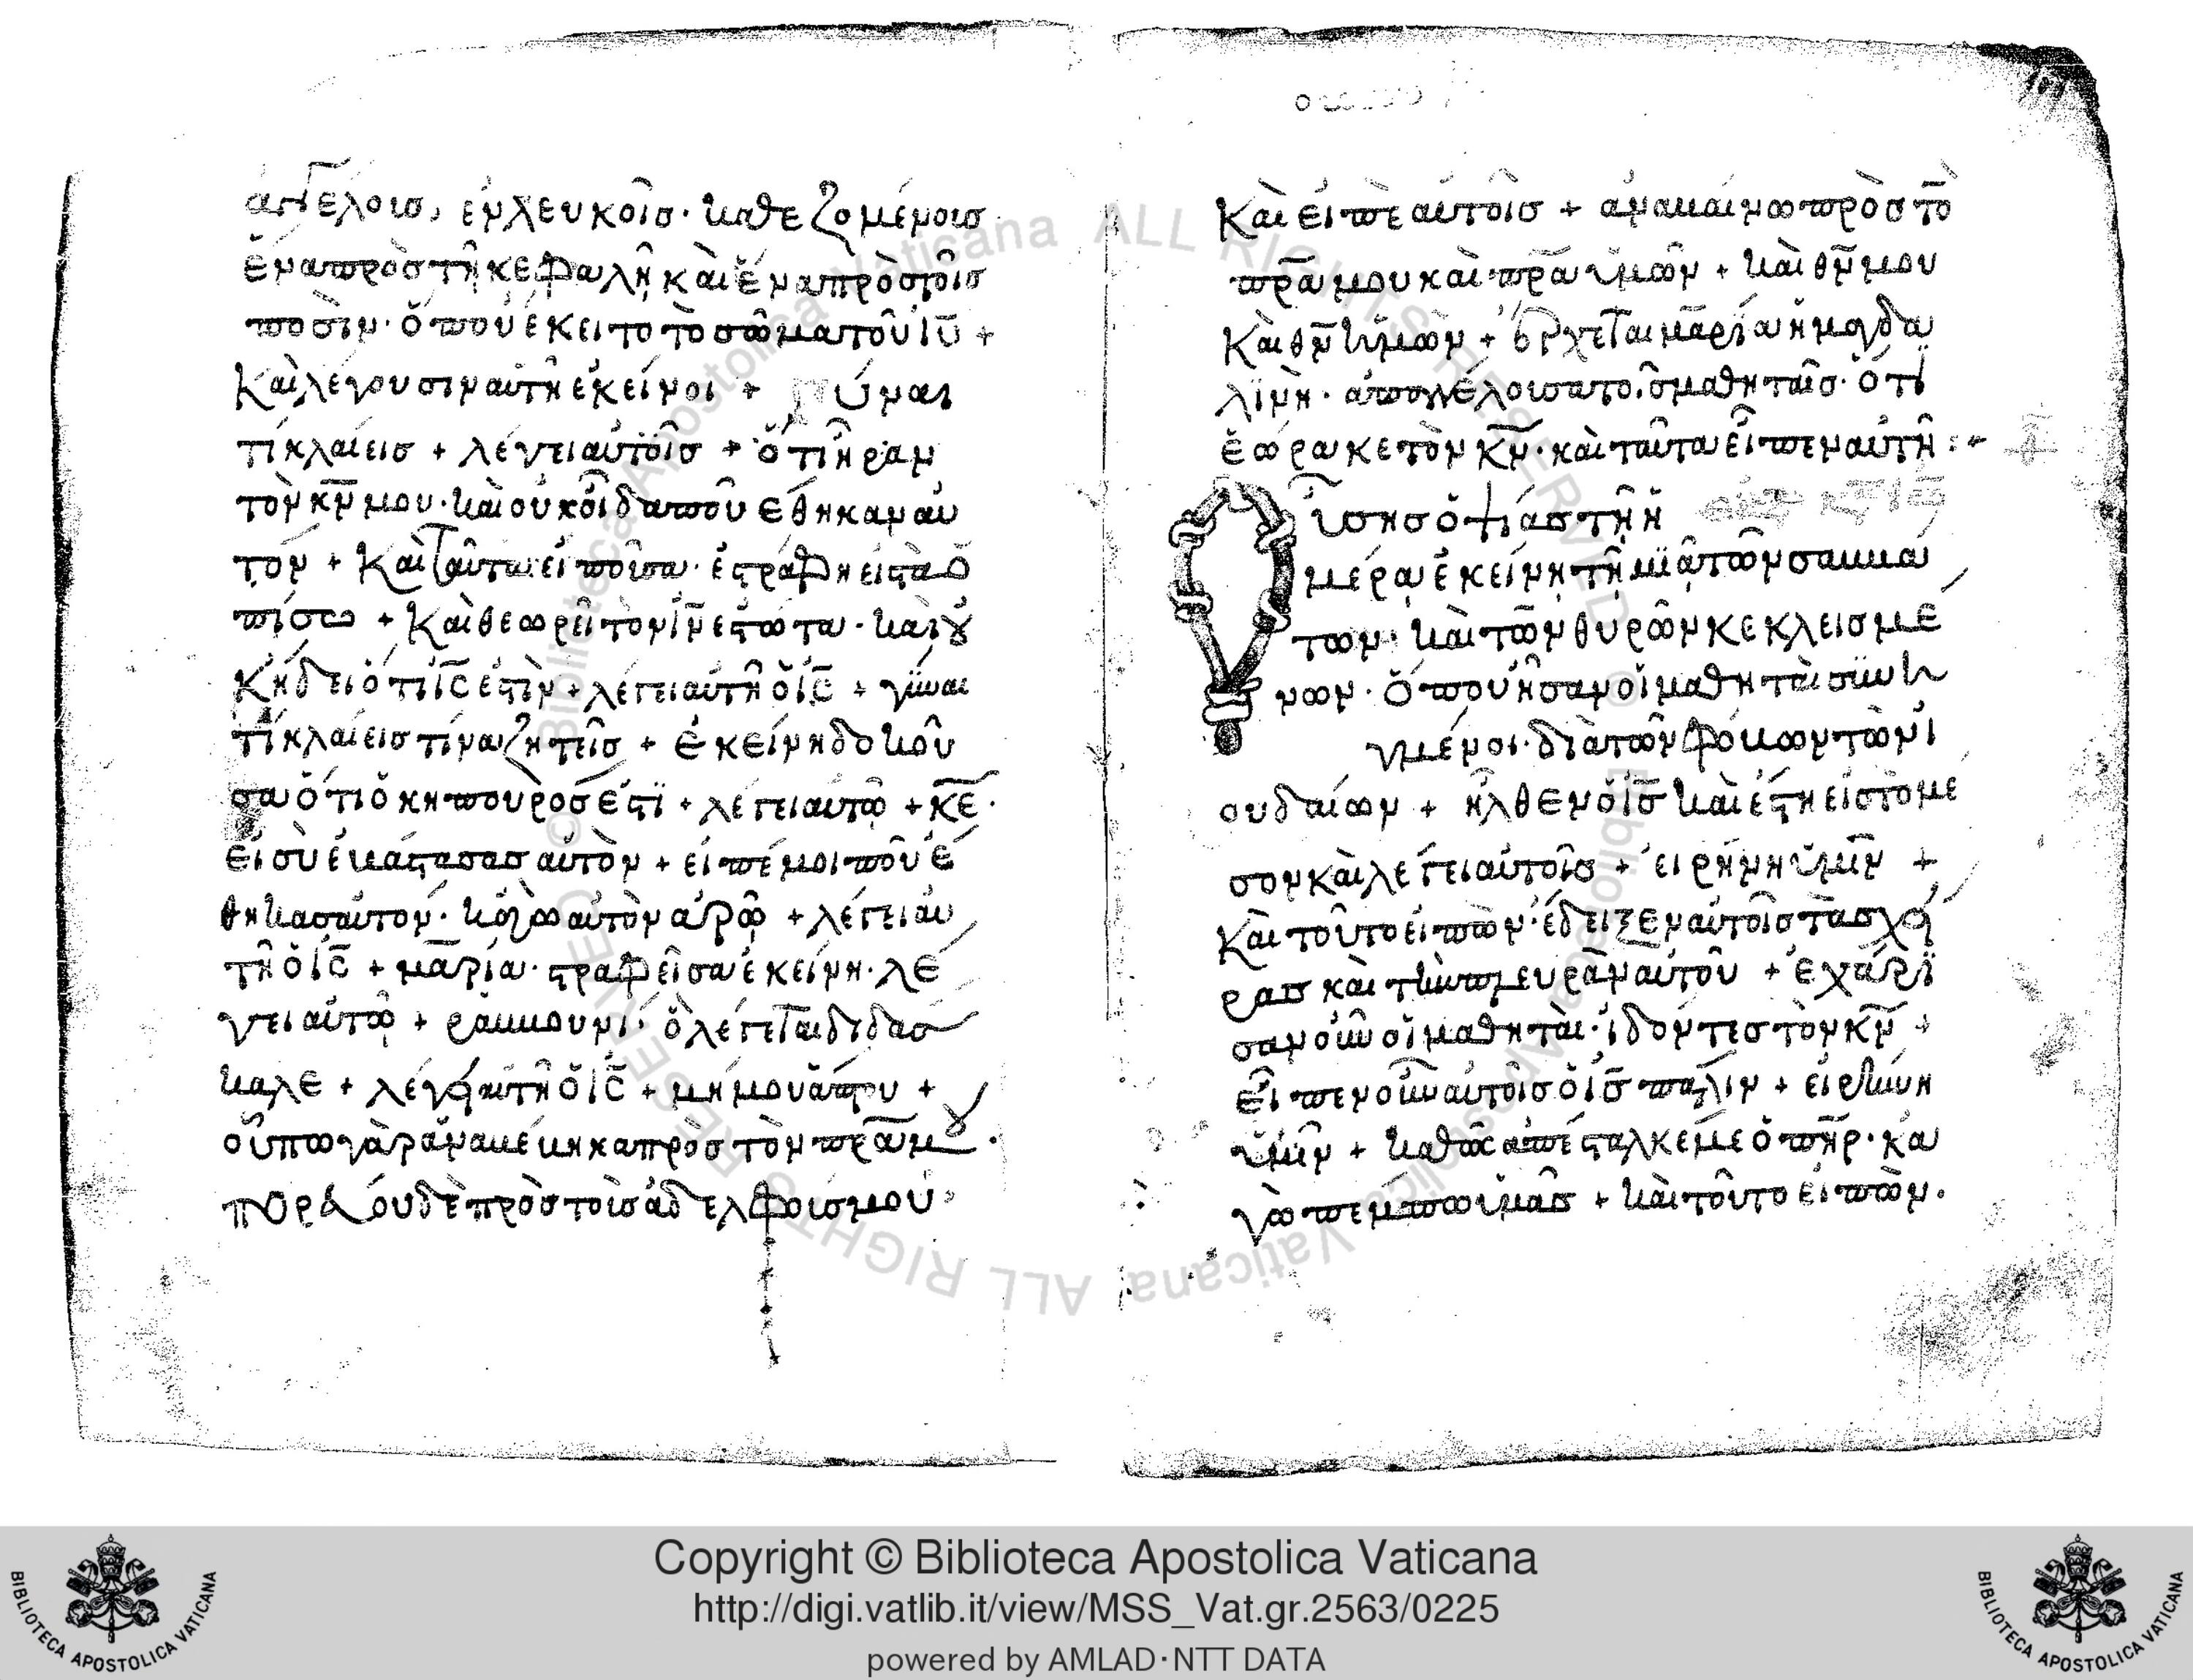 ἀγγέλουσ, ἐν λευκοῖσ· καθεζομένουσ
ἕνα πρὸσ τῇ κεφαλῇ καὶ ἕνα πρὸσ τοῖσ
ποσὶν· ὅπου ἔκειτο τὸ σῶμα τοῦ ΙΥ +
Καὶ λέγουσιν αὐτῇ ἐκεῖνοι + γύναι
τί κλαίεισ + λέγει αὐτοῖσ + ὅτι ἦραν
τὸν ΚΝ μου· καὶ οὐκ οἶδα ποῦ ἔθηκαν αὐ
τόν + Καὶ ταῦτα εἰποῦσα· ἐστράφη εἰστὰ ὀ
πίσω + Καὶ θεωρεῖ τὸν ΙΝ ἑστῶτα· καὶ οὐ
κ ἤδει ὅτι ΙΣ ἐστὶν + λέγει αὐτῇ ὁ ΙΣ + γύναι
τί κλαίεισ τίνα ζητεῖσ + ἐκείνη δοκοῦ
σα ὅτι ὁ κηπουρόσ ἐστι + λέγει αὐτῷ + ΚΕ·
εἰ σὺ ἐβάστασασ αὐτὸν + εἰπέ μοι ποῦ ἔ
θηκασ αὐτόν· κἀγὼ αὐτὸν ἀρῶ + λέγει αὐ
τῇ ὁ ΙΣ + μαρία· στραφεῖσα ἐκείνη· λέ
γει αὐτῷ + ραββουνί· ὃ λέγεται διδάσ
καλε + λέγει αὐτῇ ὁ ΙΣ + μή μου ἅπτου +
οὔπω γὰρ ἀναβέβηκα πρὸσ τὸν ΠΡΑ μου·
πορεύου δὲ πρὸσ τοὺσ ἀδελφούσ μου·
Καὶ εἰπὲ αὐτοῖσ + ἀναβαίνω πρὸσ τὸ
ΠΡΑ μου καὶ ΠΡΑ ὑμῶν + καὶ ΘΝ μου
Καὶ ΘΝ ὑμῶν + ἔρχεται μαρία ἡ μαγδα
λινὴ· ἀπαγγέλουσα τοῖσ μαθηταῖσ· ὅτι
ἑώρακε τὸν ΚΝ· καὶ ταῦτα εἶπεν αὐτῇ :+
Οὔσησ ὀψίασ τῇ ἡ
μέρᾳ ἐκείνῃ τῇ μιᾷ τῶν σαββά
των· καὶ τῶν θυρῶν κεκλεισμέ
νων· ὅπου ἦσαν οἱ μαθηταὶ συνη
γμένοι· διὰ τὸν φόβον τῶν ἰ
ουδαίων + ἦλθεν ὁ ΙΣ καὶ ἔστη εἰσ τὸ μέ
σον καὶ λέγει αὐτοῖσ + εἰρήνη ὑμῖν +
Καὶ τοῦτο εἰπὼν· ἔδειξεν αὐτοῖσ τὰσ χεῖ
ρασ καὶ τὴν πλευρὰν αὐτοῦ + ἐχάρη
σαν οὖν οἱ μαθηταὶ· ἰδόντεσ τὸν ΚΝ +
εἶπεν οὖν αὐτοῖσ ὁ ΙΣ πάλιν + εἰρήνη
ὑμῖν + καθὼσ ἀπέσταλκέ με ὁ ΠΗΡ· κἀ
γὼ πέμπω ὑμᾶσ + καὶ τοῦτο εἰπὼν·
Copyright © Biblioteca Apostolica Vaticana
http://digi.vatlib.it/view/MSS_Vat.gr.2563/0225
powered by AMLAD·NTT DATA
BIBLIOTECA APOSTOLICA VATICANA
BIBLIOTECA APOSTOLICA VATICANA